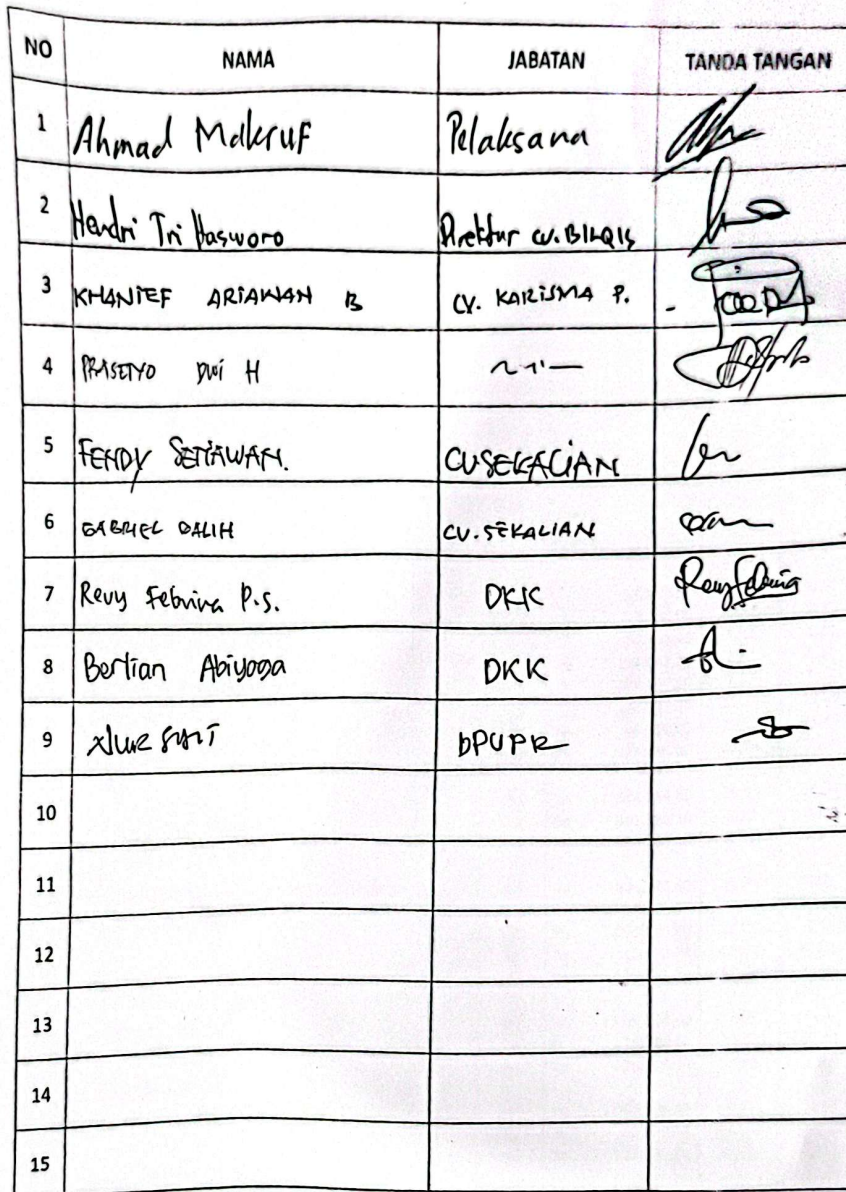 NO NAMA JABATAN TANDA TANGAN
1 Ahmad Makruf Pelaksana
2 Hendri Tri Hasworo Direktur CV. BILQIS
3 KHANIEF ARIAWAN B CV. KARISMA P.
4 PRASETYO DWI H
5 FENDY SETIAWAN. CV SEKALIAN
6 GABRIEL GALIH CV. SEKALIAN
7 Revy Febrina P.S. DKK
8 Bertian Abiyoga DKK
9 DPUPR
10
11
12
13
14
15